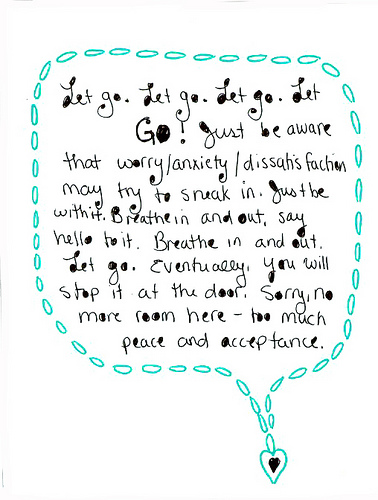 Let go. Let go. Let go. Let
Go! Just be aware
that worry/anxiety/dissatisfaction
may try to sneak in. Just be
with it. Breathe in and out, say
hello to it. Breathe in and out.
Let go. Eventually, you will
stop it at the door. Sorry, no
more room here - too much
peace and acceptance.